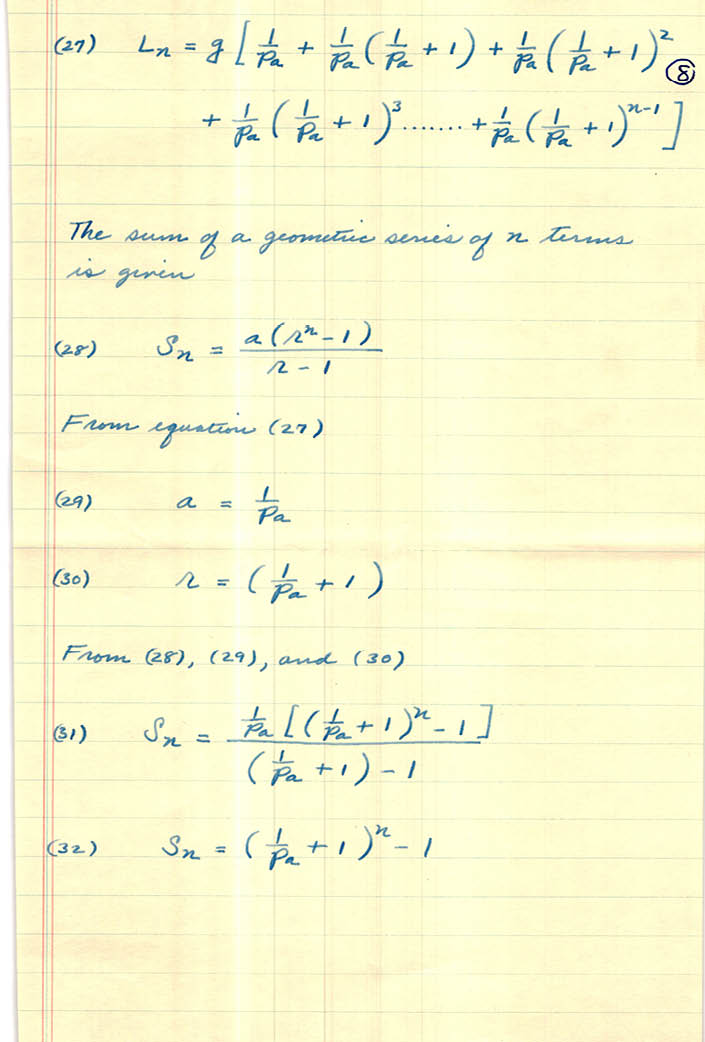 (27) Ln = g [ 1/Pa + 1/Pa ( 1/Pa + 1 ) + 1/Pa ( 1/Pa + 1 )²
⑧
+ 1/Pa ( 1/Pa + 1 )³ ....... + 1/Pa ( 1/Pa + 1 )ⁿ⁻¹ ]
The sum of a geometric series of n terms
is given
(28) Sn = a ( rⁿ - 1 ) / r - 1
From equation (27)
(29) a = 1/Pa
(30) r = ( 1/Pa + 1 )
From (28), (29), and (30)
(31) Sn = 1/Pa [ ( 1/Pa + 1 )ⁿ - 1 ] / ( 1/Pa + 1 ) - 1
(32) Sn = ( 1/Pa + 1 )ⁿ - 1